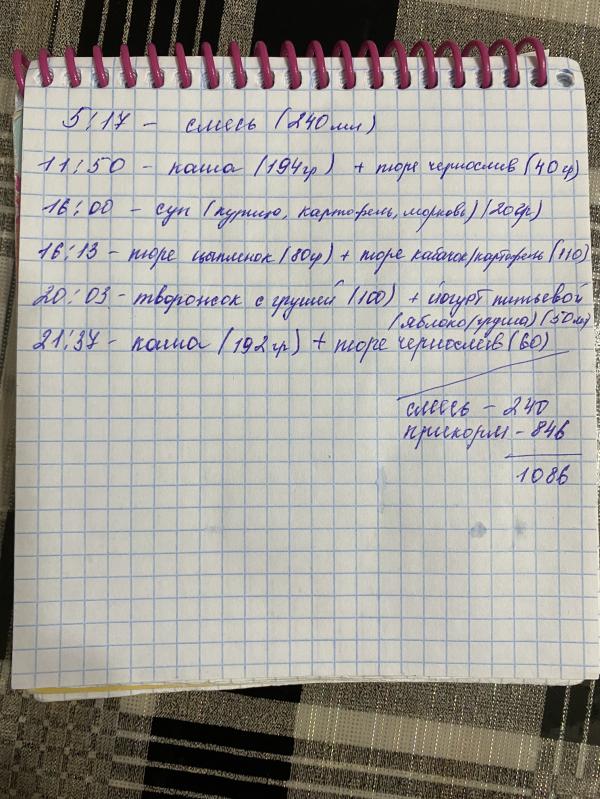 5:17 - смесь (240 мл)
11:50 - каша (194гр) + пюре чернослив (40гр)
16:00 - суп (курица, картофель, морковь) (20гр)
16:13 - пюре цыпленок (80гр) + пюре кабачок/картофель (110)
20:03 - творожок с грушей (100) + йогурт питьевой
(яблоко/груша) (50мл)
21:37 - каша (192гр) + пюре чернослив (60)
смесь - 240
прикорм - 846
1086